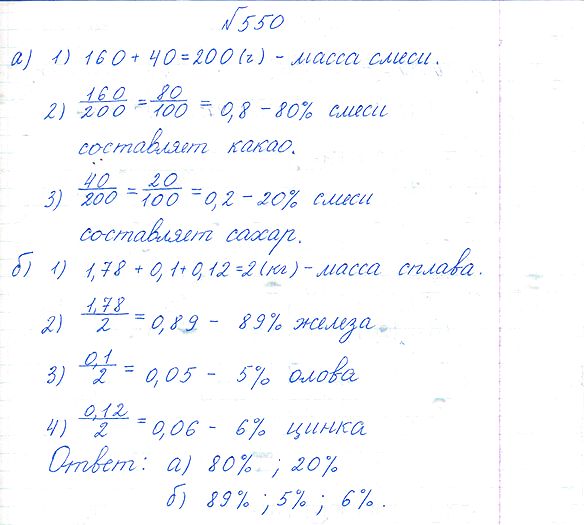 №550
а) 1) 160 + 40 = 200 (г) - масса смеси.
2) 160/200 = 80/100 = 0,8 - 80% смеси
составляет какао.
3) 40/200 = 20/100 = 0,2 - 20% смеси
составляет сахар.
б) 1) 1,78 + 0,1 + 0,12 = 2 (кг) - масса сплава.
2) 1,78/2 = 0,89 - 89% железа
3) 0,1/2 = 0,05 - 5% олова
4) 0,12/2 = 0,06 - 6% цинка
Ответ: а) 80% ; 20%
б) 89% ; 5% ; 6%.